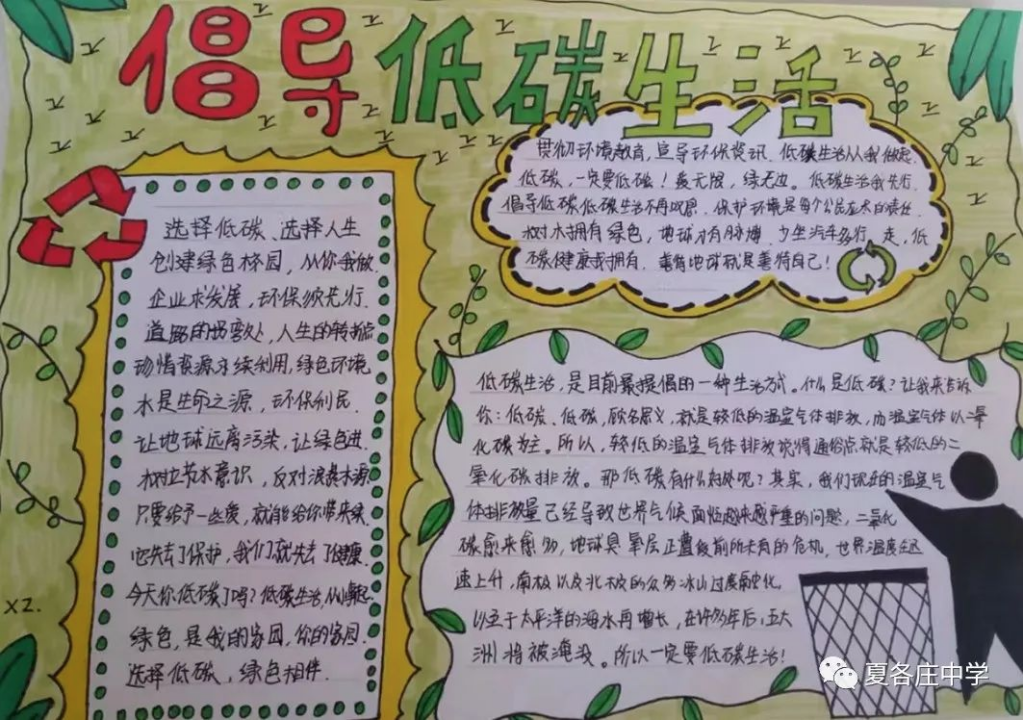 倡导低碳生活
贯彻环境教育,宣导环保资讯.低碳生活从我做起.
低碳,一定要低碳!爱无限,绿无边。低碳生活我先行.
倡导低碳低碳生活不再叹息.保护环境是每个公民应尽的责任.
树木拥有绿色,地球才有脉搏.少坐汽车多行走,低
碳健康我拥有.善待地球就是善待自己!
选择低碳、选择人生
创建绿色校园,从你我做.
企业求发展,环保须先行.
道路的拐弯处,人生的转折点
动情资源永续利用,绿色环境
水是生命之源,环保利民.
让地球远离污染,让绿色进.
树立节水意识,反对浪费水源
只要给予一些爱,就能给你带来绿.
地失去了保护,我们就失去了健康.
今天你低碳了吗?低碳生活,从小做起
绿色,是我的家园,你的家园.
选择低碳,绿色相伴.
低碳生活,是目前最提倡的一种生活方式。什么是低碳?让我来告诉
你:低碳、低碳,顾名思义,就是较低的温室气体排放,而温室气体以二氧
化碳为主。所以,较低的温室气体排放说得通俗点就是较低的二
氧化碳排放。那低碳有什么好处呢?其实,我们现在的温室气
体排放量已经导致世界气候面临越来越严重的问题,二氧化
碳愈来愈多,地球臭氧层正遭受前所未有的危机,世界温度在迅
速上升,南极以及北极的众多冰山过度融化,
以至于太平洋的海水再增长,在许多年后,五大
洲将被淹没。所以一定要低碳生活!
X2.
夏各庄中学